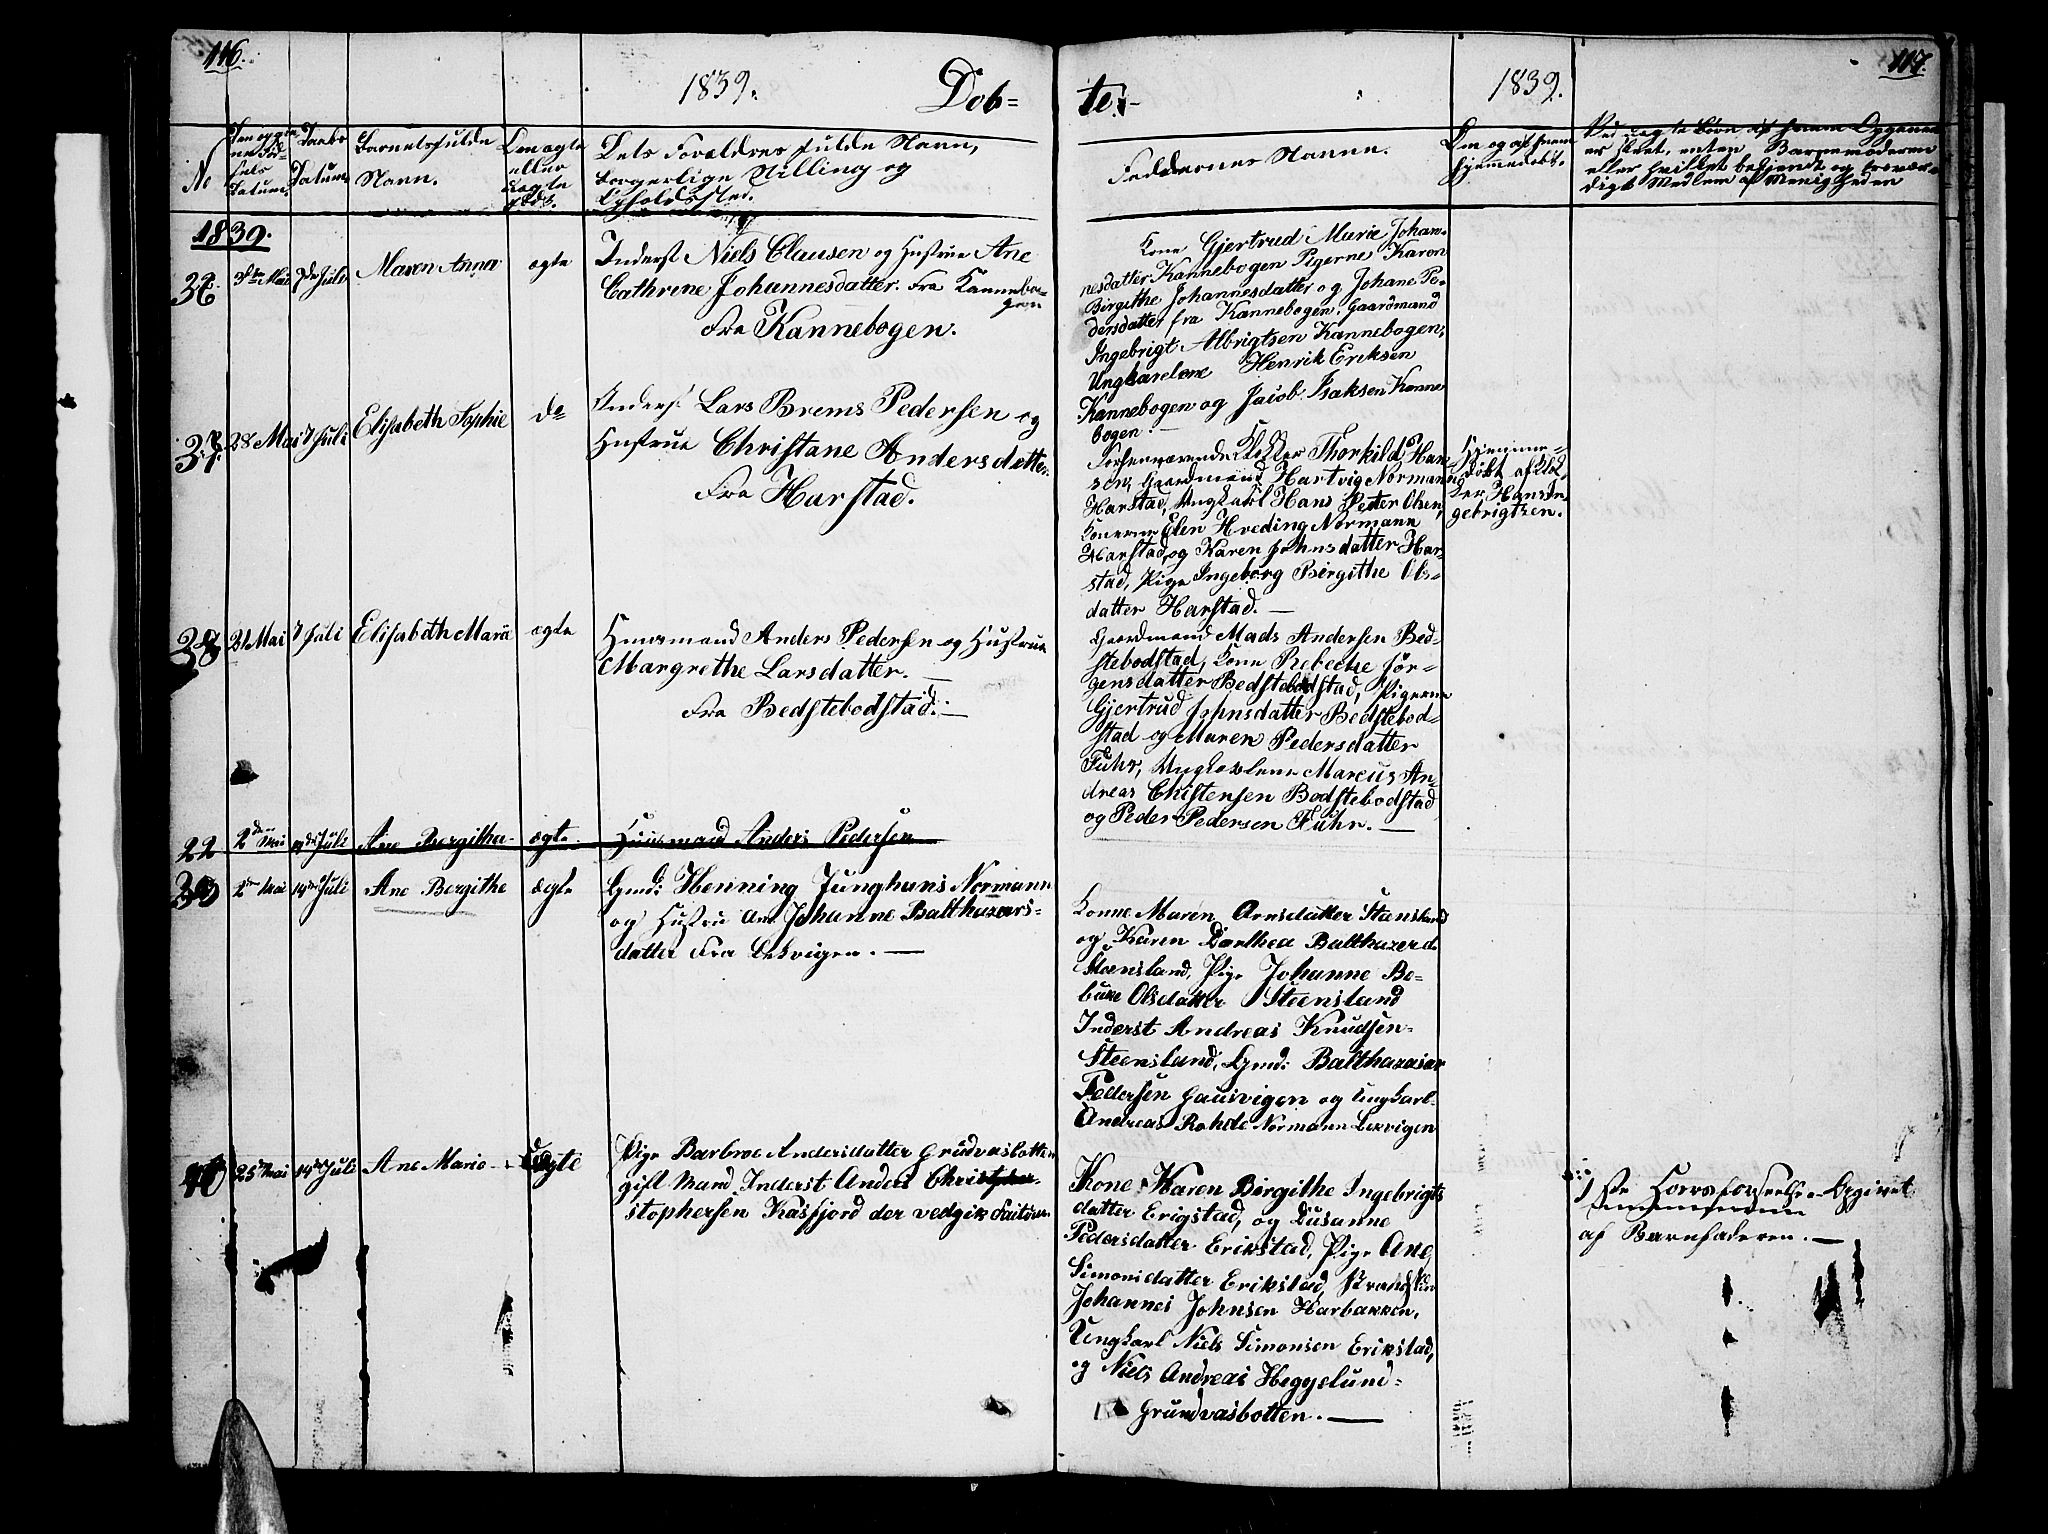 116.
1839.
Døb=
No
Datum.
Daabs
Datum
Barnets fulde
Navn.
Om ægte
eller
uægte
Dets Forældres fulde Navn,
borgerlige Stilling og
Opholdssted.
1839.
36
7de Juli
Maren Anna
ægte
Inderst Niels Clausen og Hustrue Ane
Cathrine Johannesdatter. fra Kannebo-
gen
fra Kannebogen.
37.
28 Mai
7 Juli
Elisabeth Sophie
do
Inderst Lars Brems Pedersen og
Hustrue Christane Andersdatter
fra Harstad.
38
31 Mai
7 Juli
Elisabeth Marie
ægte
Huusmand Anders Pedersen og Hustrue
Margrethe Larsdatter. —
fra Bedstebodstad. —
22
2den Mai
14de Juli
Ane Bergitha
ægte
Huusmand Anders Pedersen
39
2den Mai
14de Juli
Ane Bergithe
ægte
Gmd: Henning Junghans Normann
og Hustru Ane Johanne Balthazars-
datter fra Lekvigen. —
40
25 Mai
14de Juli
Ane Marie
Uægte
Pige Barbroe Andersdatter Grundvasbotten
gift Mand Inderst Anders Christopher-
stophersen Kasfjord der vedgik Faderen
117.
te.
1839.
Faddernes Navne.
Om og af hvem
hjemmedøbt.
Ved uægte Børn af hvem Opgaven
er skeet, enten Barnemoderen
eller hvilket bekjendt og trovær-
digt Medlem af Menigheden
Kone Gjertrud Marie Johan-
nesdatter Kannebogen Pigerne Karen
Birgithe Johannesdatter og Johane Pe-
dersdatter fra Kannebogen, Gaardmand
Ingebrigt Albrigtsen Kannebogen,
Ungkarlene Henrik Eriksen
Kannebogen og Jacob Isaksen Kanne
bogen. —
Forhenværende Klokker Thorkild Han-
sen, Gaardmand Hartvig Normann
Harstad, Ungkarl Hans Peter Olsen,
Konerne Elen Hveding Normann
Harstad, og Karen Johnsdatter Har-
stad, Pige Ingeborg Birgithe Ols-
datter Harstad. —
Hjemme-
døbt af Klok
ker Hans In
gebrigtsen.
Gaardmand Mads Andersen Bed-
stebodstad, Kone Rebecke Jør-
gensdatter Bedstebodstad, Pigerne
Gjertrud Johnsdatter Bedstebod-
stad og Maren Pedersdatter
Fuhr, Ungkarlene Marcus An-
dreas Christensen Bedstebodstad
og Peder Pedersen Fuhr. —
Konne Maren Arnsdatter Stensland
og Karen Dorthea Balthazard.
Steensland, Pige Johanne Be-
Olsdatter Steensland
Inderst Andreas Knudsen
Steensland, Gmd: Balthazasar
Pedersen Gausvigen og Ungkarl
Andreas Rohde Normann Lekvigen
Kone Karen Birgithe Ingebrigts
datter Erigstad, og Susanne
Pedersdatter Erikstad, Pige Ane
Simonsdatter Erikstad,
Johannes Johnsen Harbakken,
Ungkarl Niels Simonsen Erikstad,
og Niels Andreas Heggelund
Grundvasbotten. —
1ste Opgivet
af Barnfaderen. —